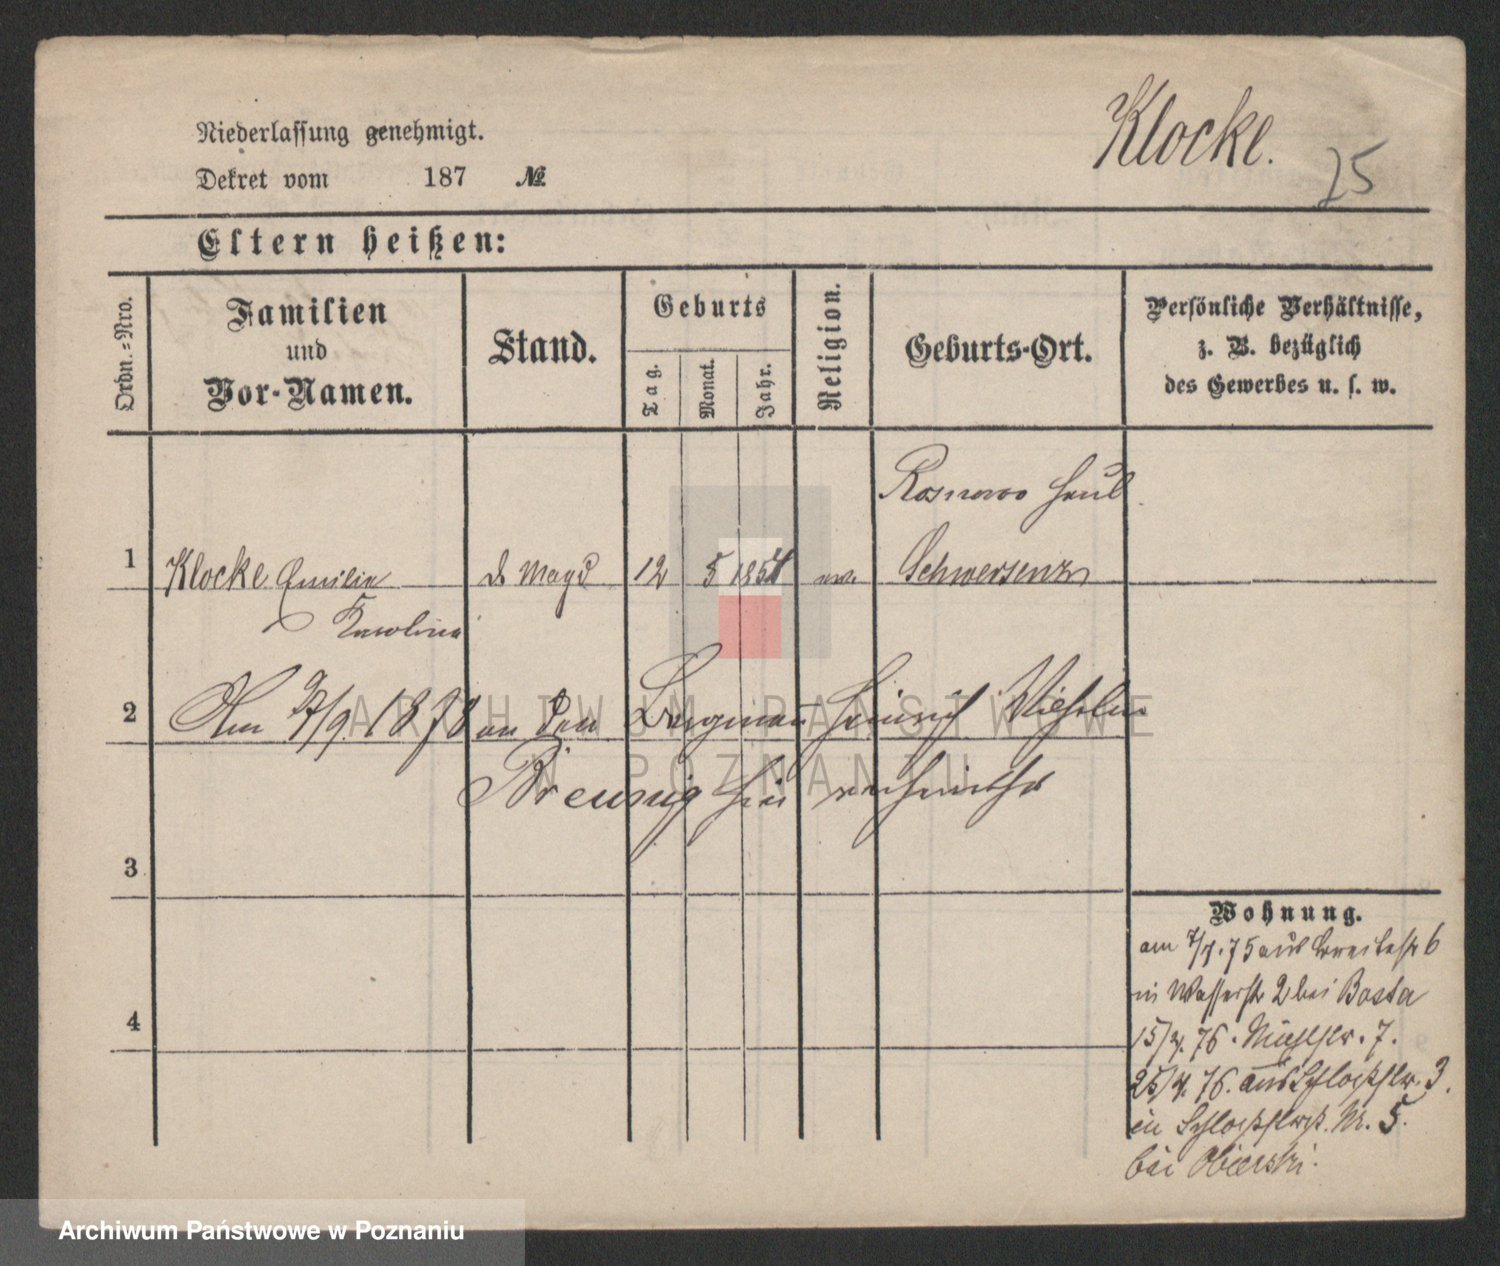 Klocke.
25
Niederlassung genehmigt.
Dekret vom 187 №
Eltern heißen:
Ordn.-Nro.
Familien
und
Vor-Namen.
Stand.
Geburts
Tag.
Monat.
Jahr.
Religion.
Geburts-Ort.
Persönliche Verhältnisse,
z. B. bezüglich
des Gewerbes u. s. w.
Rosnowo Haul
1 Klocke Emilie d Magd 12 5 1854 Schwersenz
Karolina
2 Am /9. 1878 an den Bergmann Heinrich Wilhelm
Breunig hier verheirathet
3
4
Wohnung.
am 7/7. 75 aus Breitestr 6
in Wasserstr 2 bei Basta
15/4. 76. Mühlstr. 7.
25/4. 76. aus Schloßstr. 3.
in Nr. 5.
bei
ARCHIWUM PAŃSTWOWE
W POZNANIU
Archiwum Państwowe w Poznaniu